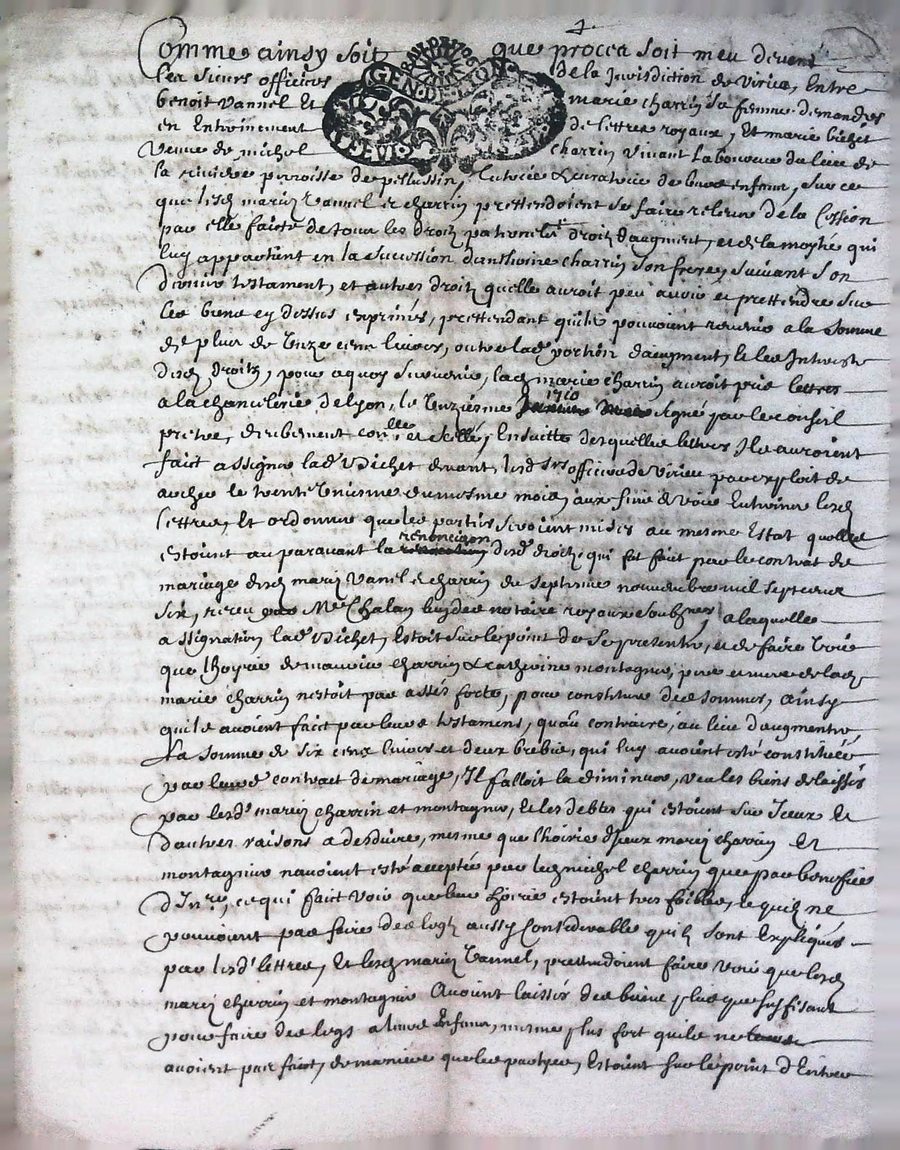 Comme ainsy soit que proces soit meu devant
les sieurs officiers de la Jurisdiction de Virieu, Entre
GEN·DE·LYON
benoit Vannel Et marie charrin sa femme demandrs
en Entherinement de lettres royaux, Et marie bichet
Veuve de michel charrin vivant laboureur du lieu de
la riviere parroisse de pellussin, tutrice & curatrice de leurs enfans, sur ce
que lesd mariez Vannel et charrin prettendoient se faire relever de la Cession
par elle faitte de tous les droitz paternelz droitz daugment, et de la moytié qui
luy appartient en la succession danthoine charrin son frere, suivant son
dernier testament, et autres droitz quelle auroit peu avoir et prettendre sur
les biens cy dessus exprimés, prettendant quils pouvoient revenir a la somme
de plus de Unze cent livres, outre lade portion daugment, et les Interests
desd droitz, pour a quoy parvenir, lad marie charrin auroit pris lettres
a la chancellerie de Lyon, le Unziesme 1710 signé par le conseil
deubement scellé, Ensuitte desquelles lettres Ils auroient
faict assigner lade Bichet devant lesd srs officiers de Virieu par exploit de
archer le vente Unieme du mesme mois, aux fins de voir Entheriner lesd
lettres, Et ordonner que les parties seroient mises au mesme Estat quelles
estoient au paravant la renonciaon desd droitz, qui fut fait par le contrat de
mariage desd mariez Vanel et charrin du septieme novembre mil sept cent
six, receu Me Chalan notaire royaux soubznez, a laquelle
assignation lade Bichet, Estoit sur le point de se presenter, et de faire voir
que lhoyrie de maurice charrin & catherine montagnier, pere et mere de lad
marie charrin nestoit pas asses forte, pour constituer des sommes, ainsy
quils avoient fait par leurs testamens, quau contraire, au lieu daugmenter,
la somme de six cens livres et deux brebis, qui luy avoient esté constituées
par leurd contract de mariage, Il falloit la diminuer, veu les biens delaissés
par lesds mariez charrin et montagnier, Et les debtes qui estoient sur Iceux Et
dautres raisons a desduire, mesme que lhoirie desd mariez charrin Et
montagnier navoient esté acceptée par led michel charrin que par benefice
dInre, ce qui faict voir que leur hoirie estoient tres foible, et quilz ne
pouvoient pas faire des legz aussy considerable quilz sont Expliqués
par lesds lettres, Et lesd mariez Vannel, prettendoient faire voir que lesd
mariez charrin et montagnier avoient laissés des biens plus que suffisant
pour faire des legs a leurs Enfans, mesme plus fort quils ne
avoient pas fait, de maniere que les parties, Estoient sur le point dEntrer